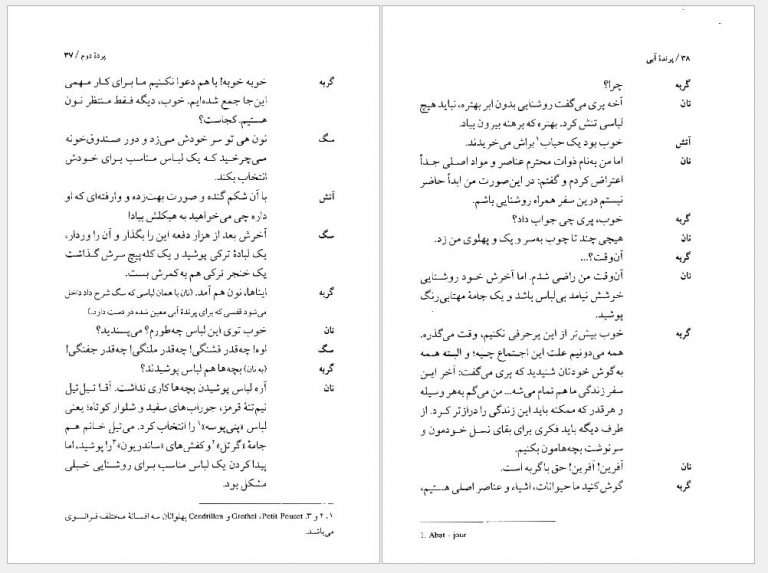 پردهٔ دوم / ۳۷
گربه خوبه خوبه! با هم دعوا نکنیم ما برای کار مهمی
این‌جا جمع شده‌ایم. خوب، دیگه فقط منتظر نون
هستیم. کجاست؟
سگ نون هی تو سر خودش می‌زد و دور صندوق‌خونه
می‌چرخید که یک لباس مناسب برای خودش
انتخاب بکند.
آتش با آن شکم گنده و صورت بهت‌زده و وارفته‌ای که او
داره چی می‌خواهید به هیکلش بیاد!
سگ آخرش بعد از هزار دفعه این را بگذار و آن را وردار،
یک لبادهٔ ترکی پوشید و یک کله‌پیچ سرش گذاشت
یک خنجر ترکی هم به‌کمرش بست.
گربه ایناها، نون هم آمد. (نان با همان لباسی که سگ شرح داد داخل
می‌شود قفسی که برای پرندهٔ آبی معین شده در دست دارد.)
نان خوب توی این لباس چه‌طورم؟ می‌پسندید؟
سگ اوه! چه‌قدر قشنگی! چه‌قدر ملنگی! چه‌قدر جفنگی!
گربه (به نان) بچه‌ها هم لباس پوشیدند؟
نان آره لباس پوشیدن بچه‌ها کاری نداشت. آقا تیل‌تیل
نیم‌تنهٔ قرمز، جوراب‌های سفید و شلوار کوتاه؛ یعنی
لباس «پتی‌پوسه»۱ را انتخاب کرد. می‌تیل خانم هم
جامهٔ «گرتل»۲ و کفش‌های «ساندریون»۳ را پوشید، اما
پیدا کردن یک لباس مناسب برای روشنایی خیلی
مشکل بود.
۱، ۲ و ۳. Petit Poucet، Grethel و Cendrillon پهلوانان سه افسانهٔ مختلف فرانسوی
می‌باشند.
۳۸ / پرندهٔ آبی
گربه چرا؟
نان آخه پری می‌گفت روشنایی بدون ابر بهتره، نباید هیچ
لباسی تنش کرد. بهتره که برهنه بیرون بیاد.
آتش خوب بود یک حباب۱ براش می‌خریدند.
نان اما من به‌نام ذوات محترم عناصر و مواد اصلی جداً
اعتراض کردم و گفتم: در این‌صورت من ابداً حاضر
نیستم درین سفر همراه روشنایی باشم.
گربه خوب، پری چی جواب داد؟
نان هیچی چند تا چوب به‌سر و یک و پهلوی من زد.
گربه آن‌وقت؟...
نان آن‌وقت من راضی شدم. اما آخرش خود روشنایی
خوشش نیامد بی‌لباس باشد و یک جامهٔ مهتابی‌رنگ
پوشید.
گربه خوب بیش‌تر از این پرحرفی نکنیم، وقت می‌گذره.
همه می‌دونیم علت این اجتماع چیه؛ و البته همه
به‌گوش خودتان شنیدید که پری می‌گفت: آخر این
سفر زندگی ما هم تمام می‌شه... من می‌گم به‌هر وسیله
و هرقدر که ممکنه باید این زندگی را درازتر کرد. از
طرف دیگه باید فکری برای بقای نسل خودمون و
سرنوشت بچه‌هامون بکنیم.
نان آفرین! آفرین! حق با گربه است.
گربه گوش کنید ما حیوانات، اشیاء و عناصر اصلی هستیم،
1. Abat - jour